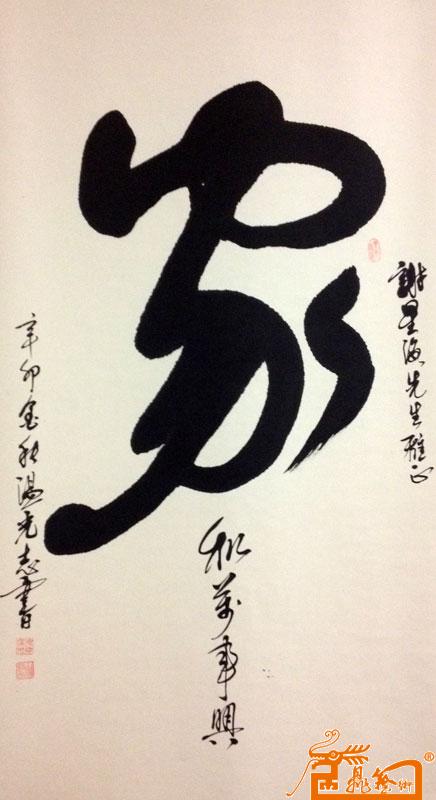 家
和萬事興
謝星海先生雅正
辛卯金秋溫光志書
鼎藝術
®